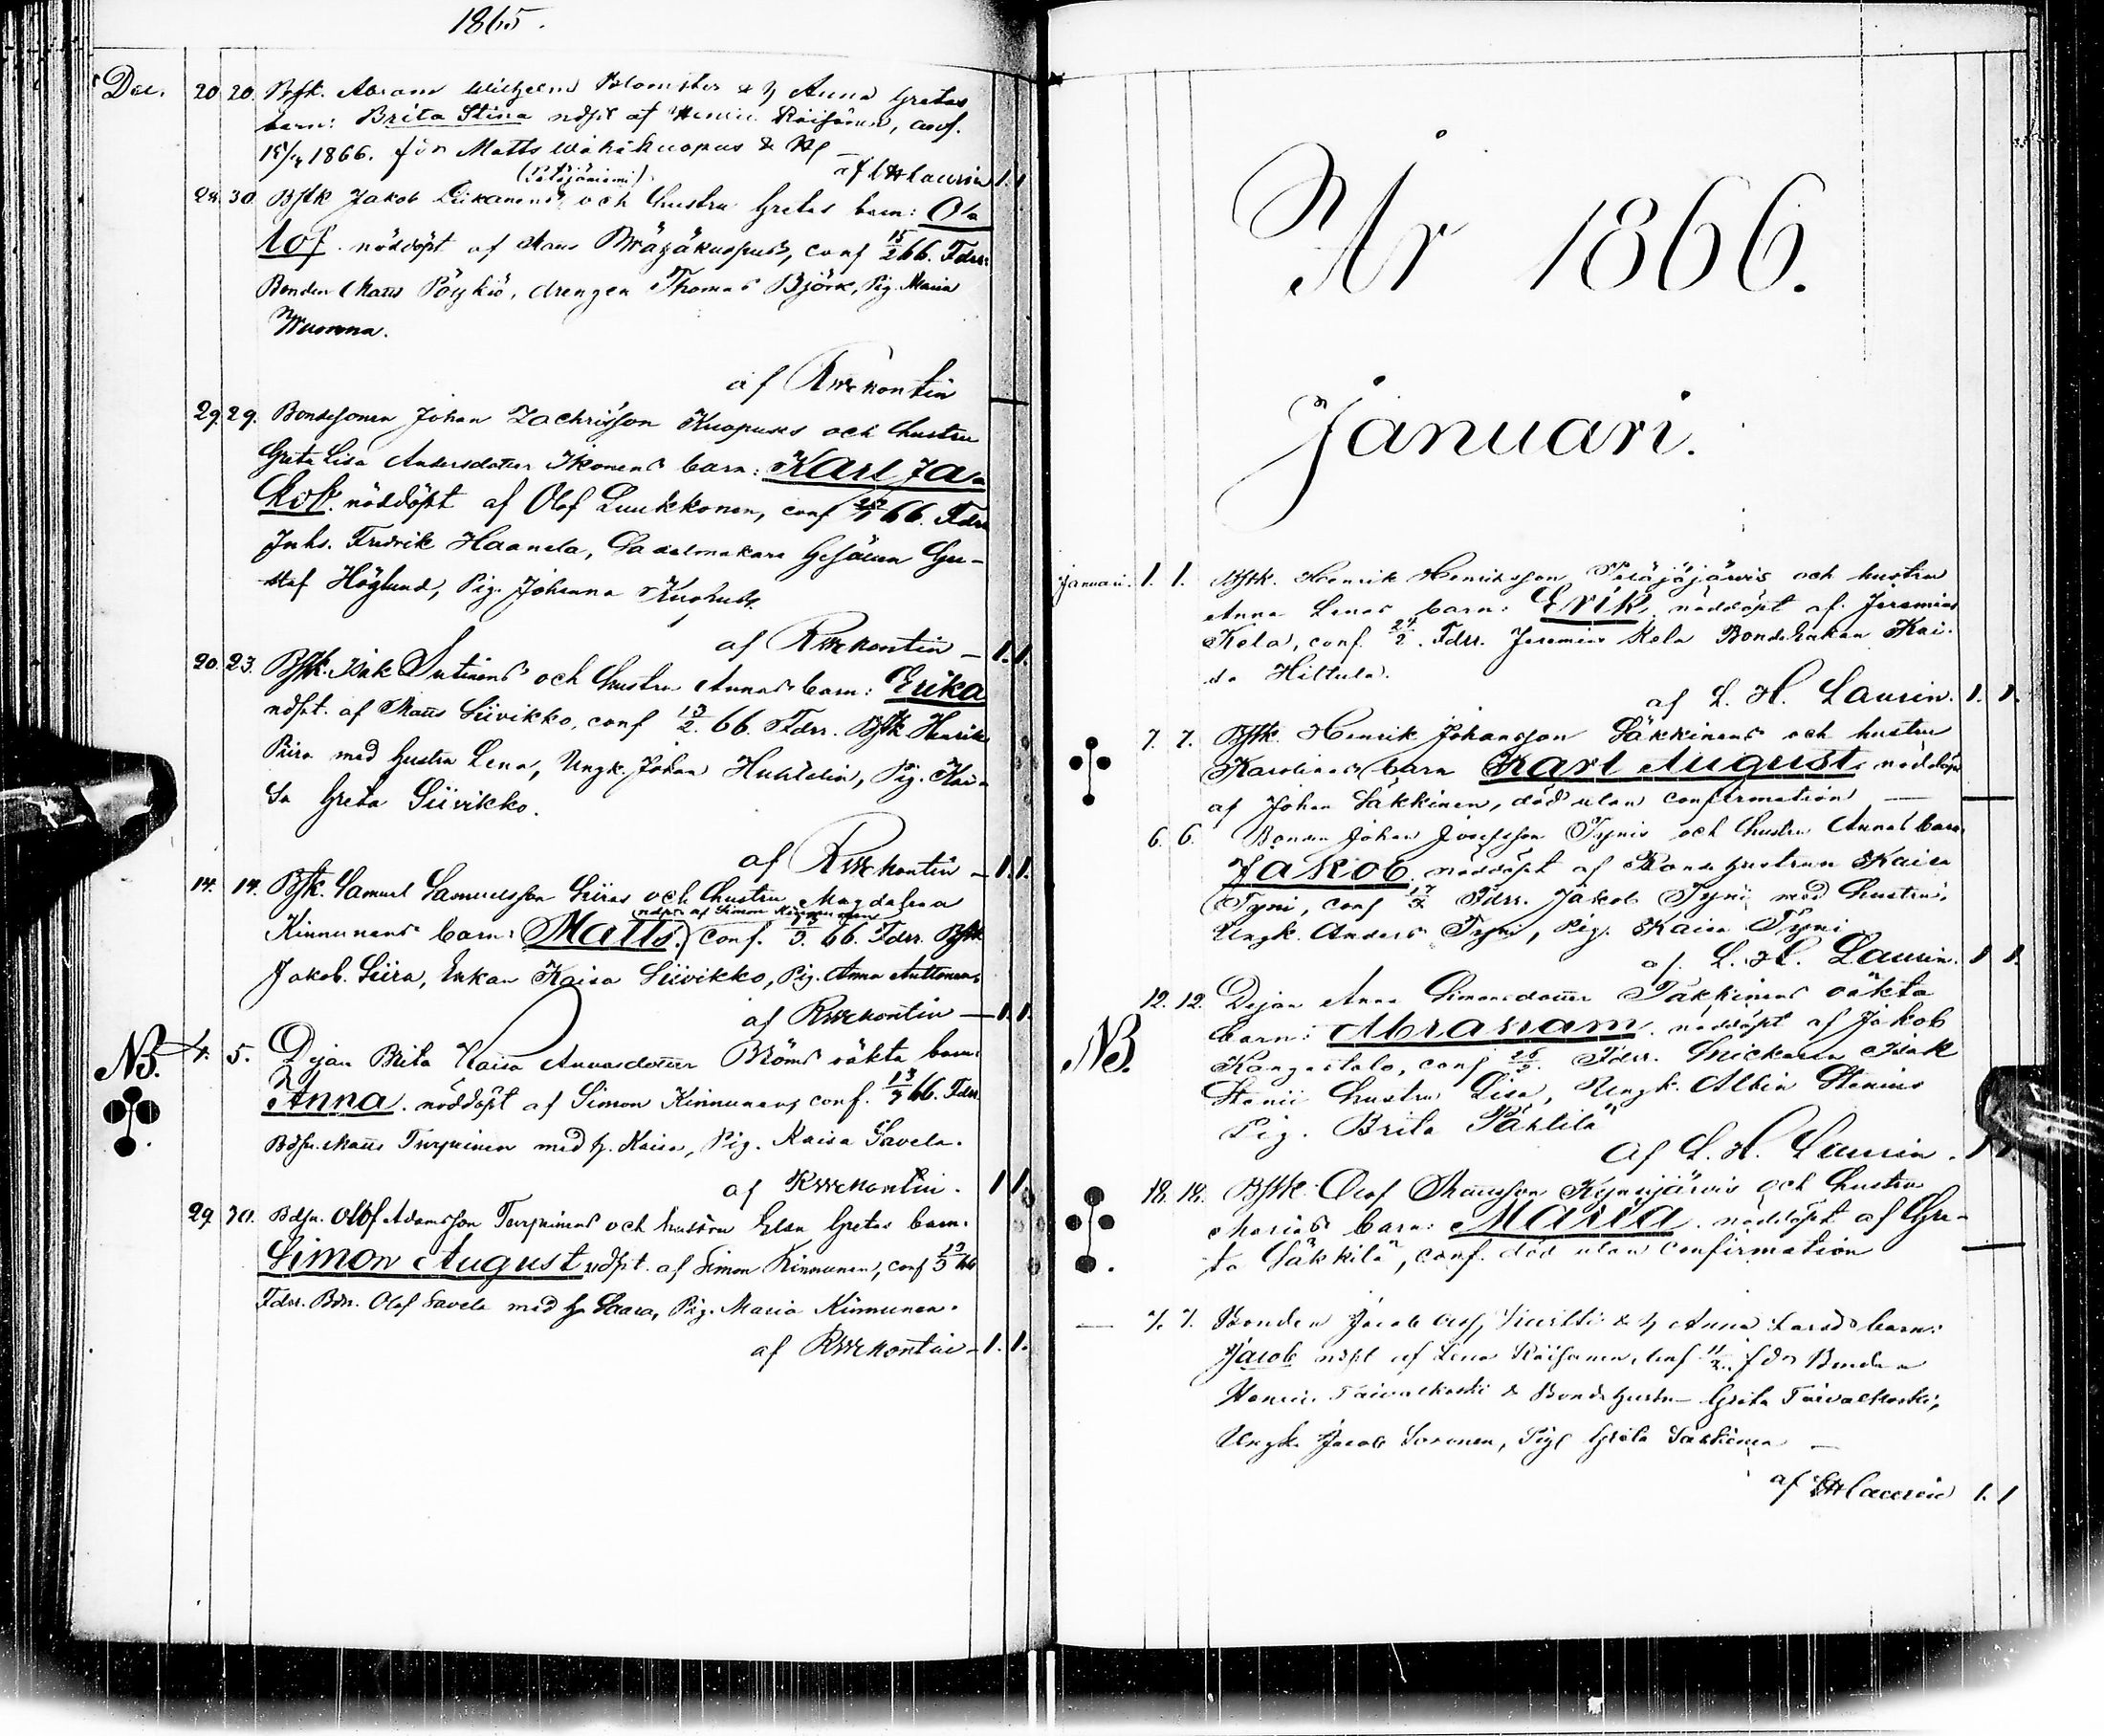 1865.
Dec. 20. 20. Bstk. Abram Wilhelm Blomster & h Anna Gretas
barn: Brita Stina ndpt af Henric Räisänen, conf.
15/4 1866. fdr Matts Wähäkuopus & H
af LHLaurin 1. 1
(Petäjäniemi)
24. 30 Bstk Jakob Liikanens och hustru Gretas barn: Ol-
lof. nöddöpt af Hans Wägäkuopus, conf 15/2 66. Fdrr:
Bonden Matts Pöykiö, drengen Thomas Björk, Pig. Maria
Wuoma.
af KWMontin
29. 29. Bondesonen Johan Zachrisson Kuopus och hustru
Greta Lisa Andersdotter Ikonens barn: Karl Ja-
kob. nöddöpt af Olof Luukkonen, conf 66. Fdrr
Inhs. Fredrik Haanela, Sadelmakare Gesällen Gu-
staf Höglund, Pig. Johanna
af KWMontin — 1. 1.
20. 23. Bstk. Isak Sutinens och hustru Annas barn: Erika
ndpt. af Matts Siivikko, conf 13/2. 66. Fdrr. Bstk Henrik
Piira med hustru Lena, Ungk. Johan Huhtelin, Pig. Kai-
sa Greta Siivikko.
af KWMontin — 1. 1.
14. 14. Bstk. Samuel Samuelsson Siiras och hustru Magdalena
(ndpt af Simon Kinnunen)
Kinnunens barn: Matts. conf. 66. Fdrr. Bstk
Jakob. Siira, Enkan Kaisa Siivikko, Pig. Anna Anttonen
af KWMontin — 1. 1.
NB. 4. 5. Dejan Brita Kaisa Annasdotter Bröms oäkta barn:
Anna. nöddöpt af Simon Kinnunen, conf. 66. Fdrr
Bdsn. Matts Turpeinen med h. Kaisa, Pig. Kaisa Savela.
af KWMontin. 1 1.
29 30. Bdsn. Olof Adamsson Turpeinens och hustru Elsa Gretas barn.
Simon August ndpt. af Simon Kinnunen, conf 66
Fdrr. Bdn. Olof Savela med h Saara, Pig. Maria Kinnunen.
af KWMontin — 1. 1.
År 1866.
Januari.
Januari. 1. 1. Bstk. Henrik Henriksson Petäjäjärvis och hustru
Anna Lenas barn: Erik, nöddöpt af Jeremias
Kela, conf. 24/2. Fdrr. Jeremias Kela Bondehakan Kai-
sa Hiltula.
af L. H. Laurin. 1. 1.
7. 7. Bstk. Henrik Johansson Säkkinens och hustru
Karolinas barn Karl August. nöddöpt
af Johan Säkkinen, död utan confirmation —
6. 6. Bonden Johan Josefsson Tynis och hustru Annas barn
Jakob, nöddöpt af Bonde hustrun Kaisa
Tyni, conf Fdrr. Jakob Tyni med hustru,
Ungk. Anders Tyni, Pig. Kaisa Tyni
af. L. H. Laurin. 1 1.
NB. 12. 12. Dejan Anna Simonsdotter Säkkinens oäkta
barn: Abraham. nöddöpt af Jakob
Kangastalo, conf Fdrr. Snickaren Isak
Stenii hustru Lisa, Ungk. Albin Stenius
Pig. Brita Pahtila
af L. H. Laurin.
18. 18. Bstk. Olof Mattsson Kynsijärvis och hustru
Marias barn: Maria. nöddöpt af Gre-
ta Säkkilä, conf. död utan confirmation
— 7. 7. Bonden Jacob & h Anna Larsds barn:
Jacob ndpt af Lena Räisänen, conf 11/2. fdr Bonden
Henric Taivalkoski & Bondehustru Greta Taivalkoski,
Ungk. Jacob Soronen, Pig Greta Säkkinen —
af LHLaurin 1. 1